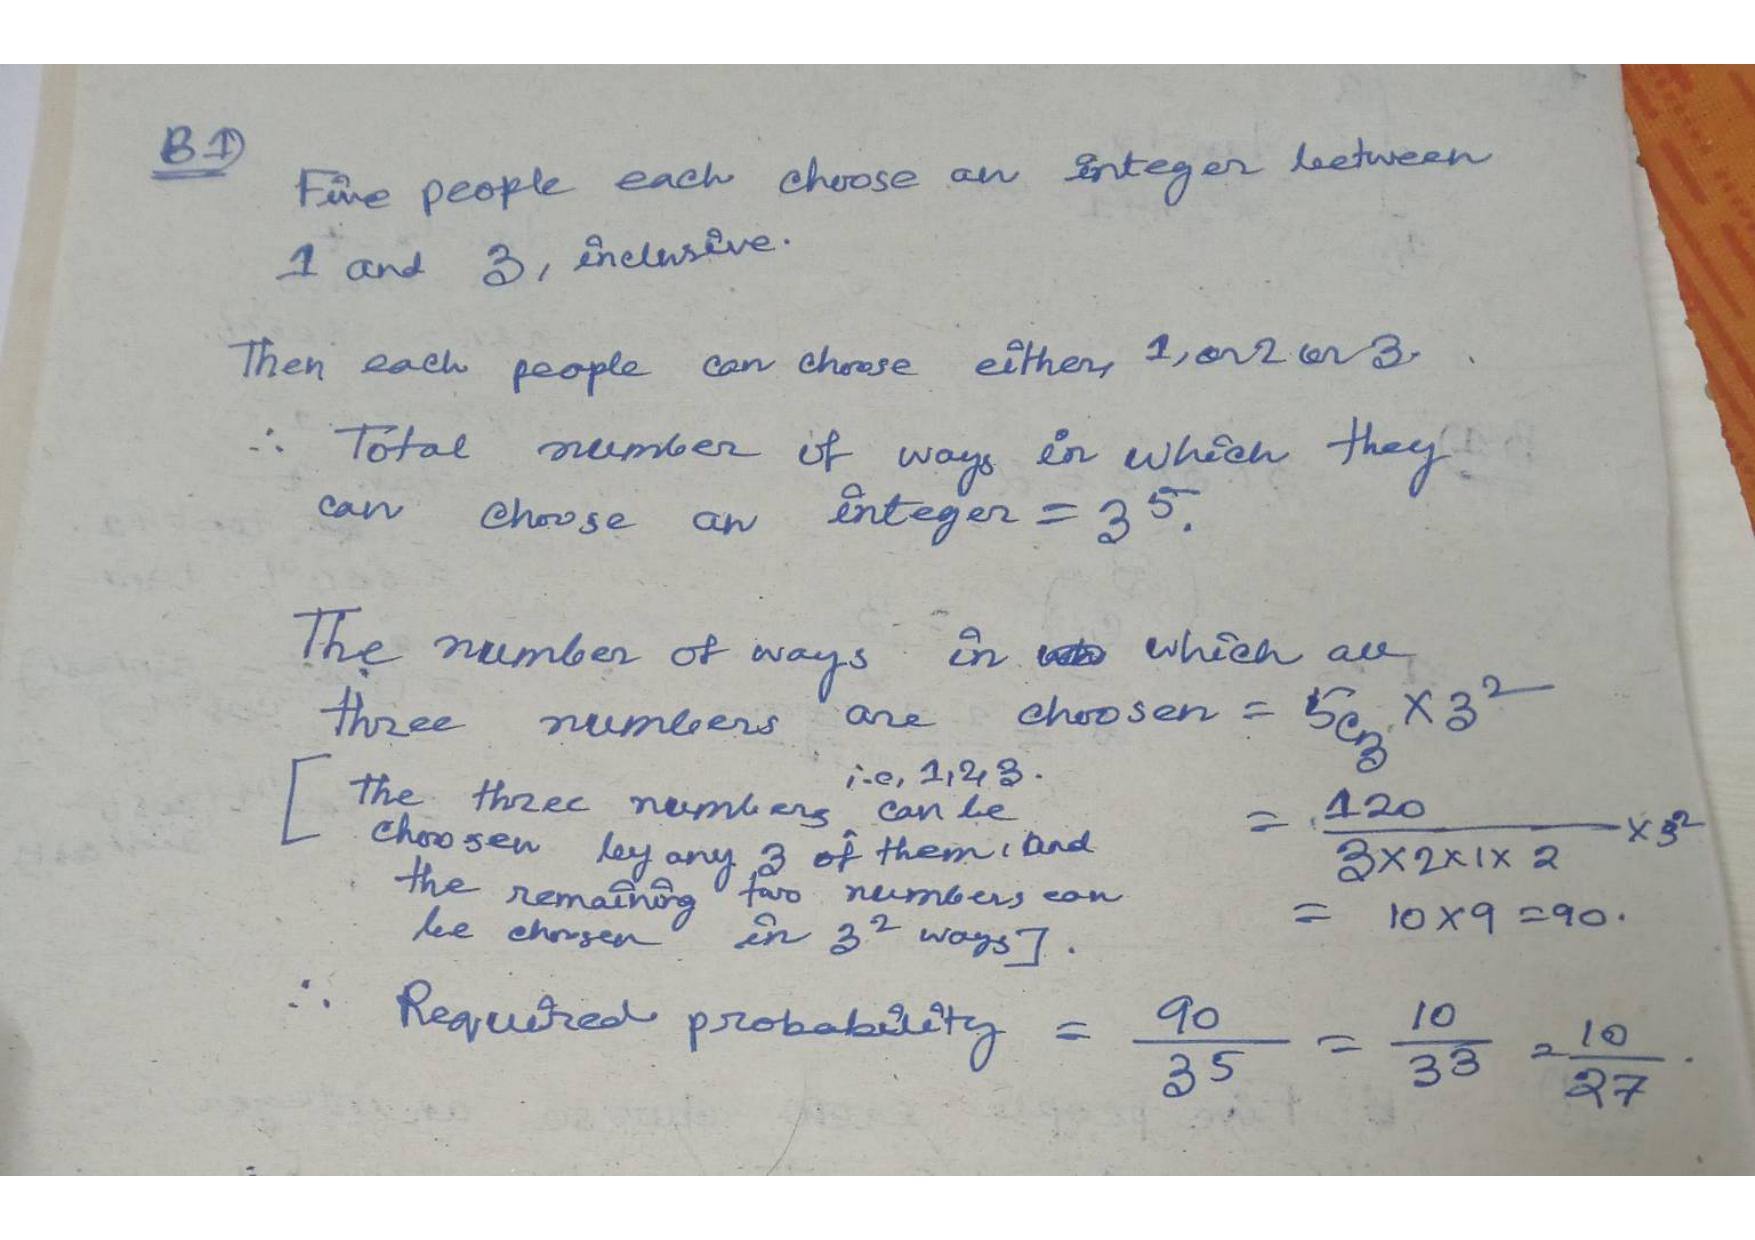 B1)
Five people each choose an integer between
1 and 3, inclusive.
Then each people can choose either, 1, or 2 or 3.
∴ Total number of ways in which they
can choose an integer = 3^5.
The number of ways in which all
three numbers are choosen = 5C3 × 3^2
i.e, 1,2,3.
[ the three numbers can be
choosen by any 3 of them, and
the remaining two numbers can
be chosen in 3^2 ways].
= 120 / 3×2×1×2 × 3^2
= 10 × 9 = 90.
∴ Required probability = 90 / 3^5 = 10 / 3^3 = 10 / 27.